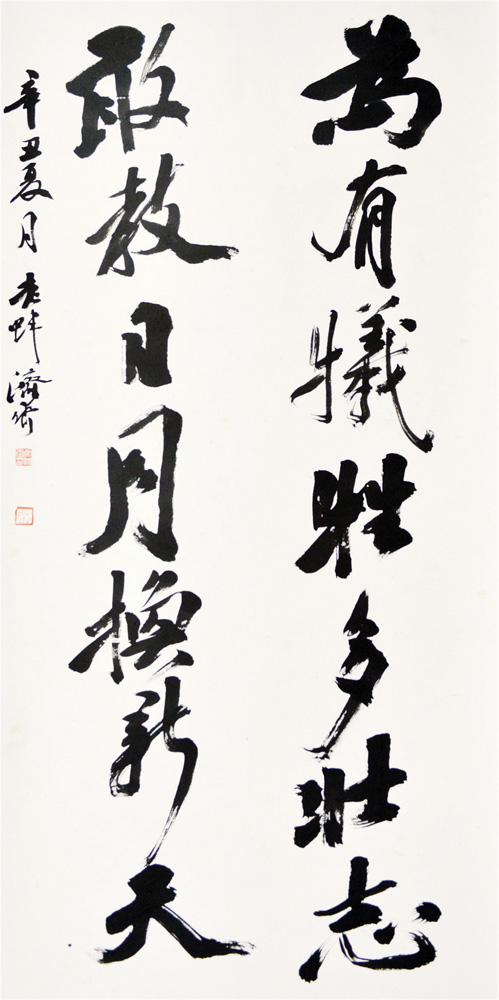 為有犧牲多壯志
敢教日月換新天
辛丑夏月 老蚌濟齋